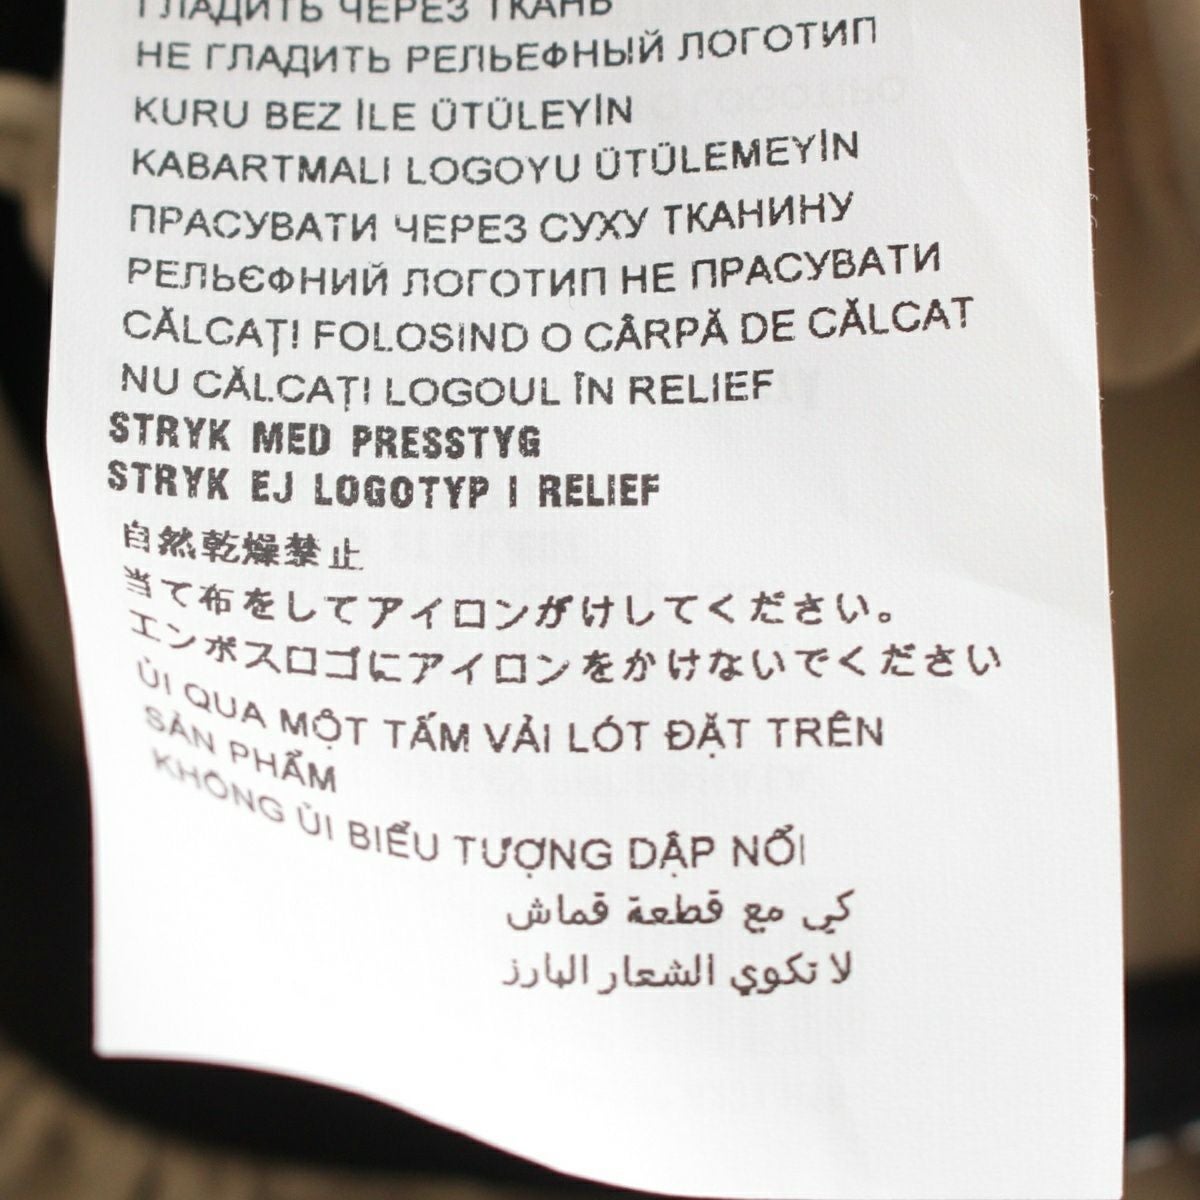 ГЛАДИТЬ ЧЕРЕЗ ТКАНЬ
НЕ ГЛАДИТЬ РЕЛЬЕФНЫЙ ЛОГОТИП
KURU BEZ İLE ÜTÜLEYİN
KABARTMALI LOGOYU ÜTÜLEMEYİN
ПРАСУВАТИ ЧЕРЕЗ СУХУ ТКАНИНУ
РЕЛЬЄФНИЙ ЛОГОТИП НЕ ПРАСУВАТИ
CĂLCAȚI FOLOSIND O CÂRPĂ DE CĂLCAT
NU CĂLCAȚI LOGOUL ÎN RELIEF
STRYK MED PRESSTYG
STRYK EJ LOGOTYP I RELIEF
自然乾燥禁止
当て布をしてアイロンがけしてください。
エンボスロゴにアイロンをかけないでください
ỦI QUA MỘT TẤM VẢI LÓT ĐẶT TRÊN
SẢN PHẨM
KHÔNG ỦI BIỂU TƯỢNG DẬP NỔI
كي مع قطعة قماش
لا تكوي الشعار البارز